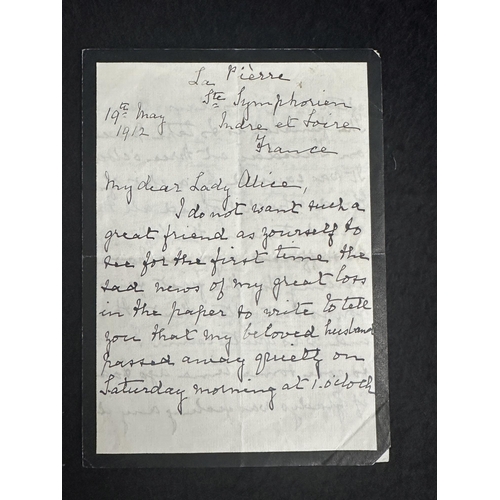 La Pierre
Ste Symphorien
19th May
1912
Indre et Loire
France
My dear Lady Alice,
I do not want such a
great friend as yourself to
see for the first time the
sad news of my great loss
in the paper so write to tell
you that my beloved husband
passed away quietly on
Saturday morning at 1.oclock